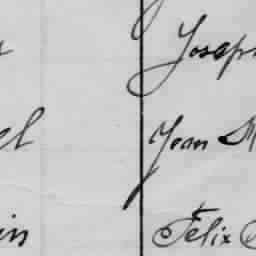 Joseph
el Jean M
in Felix